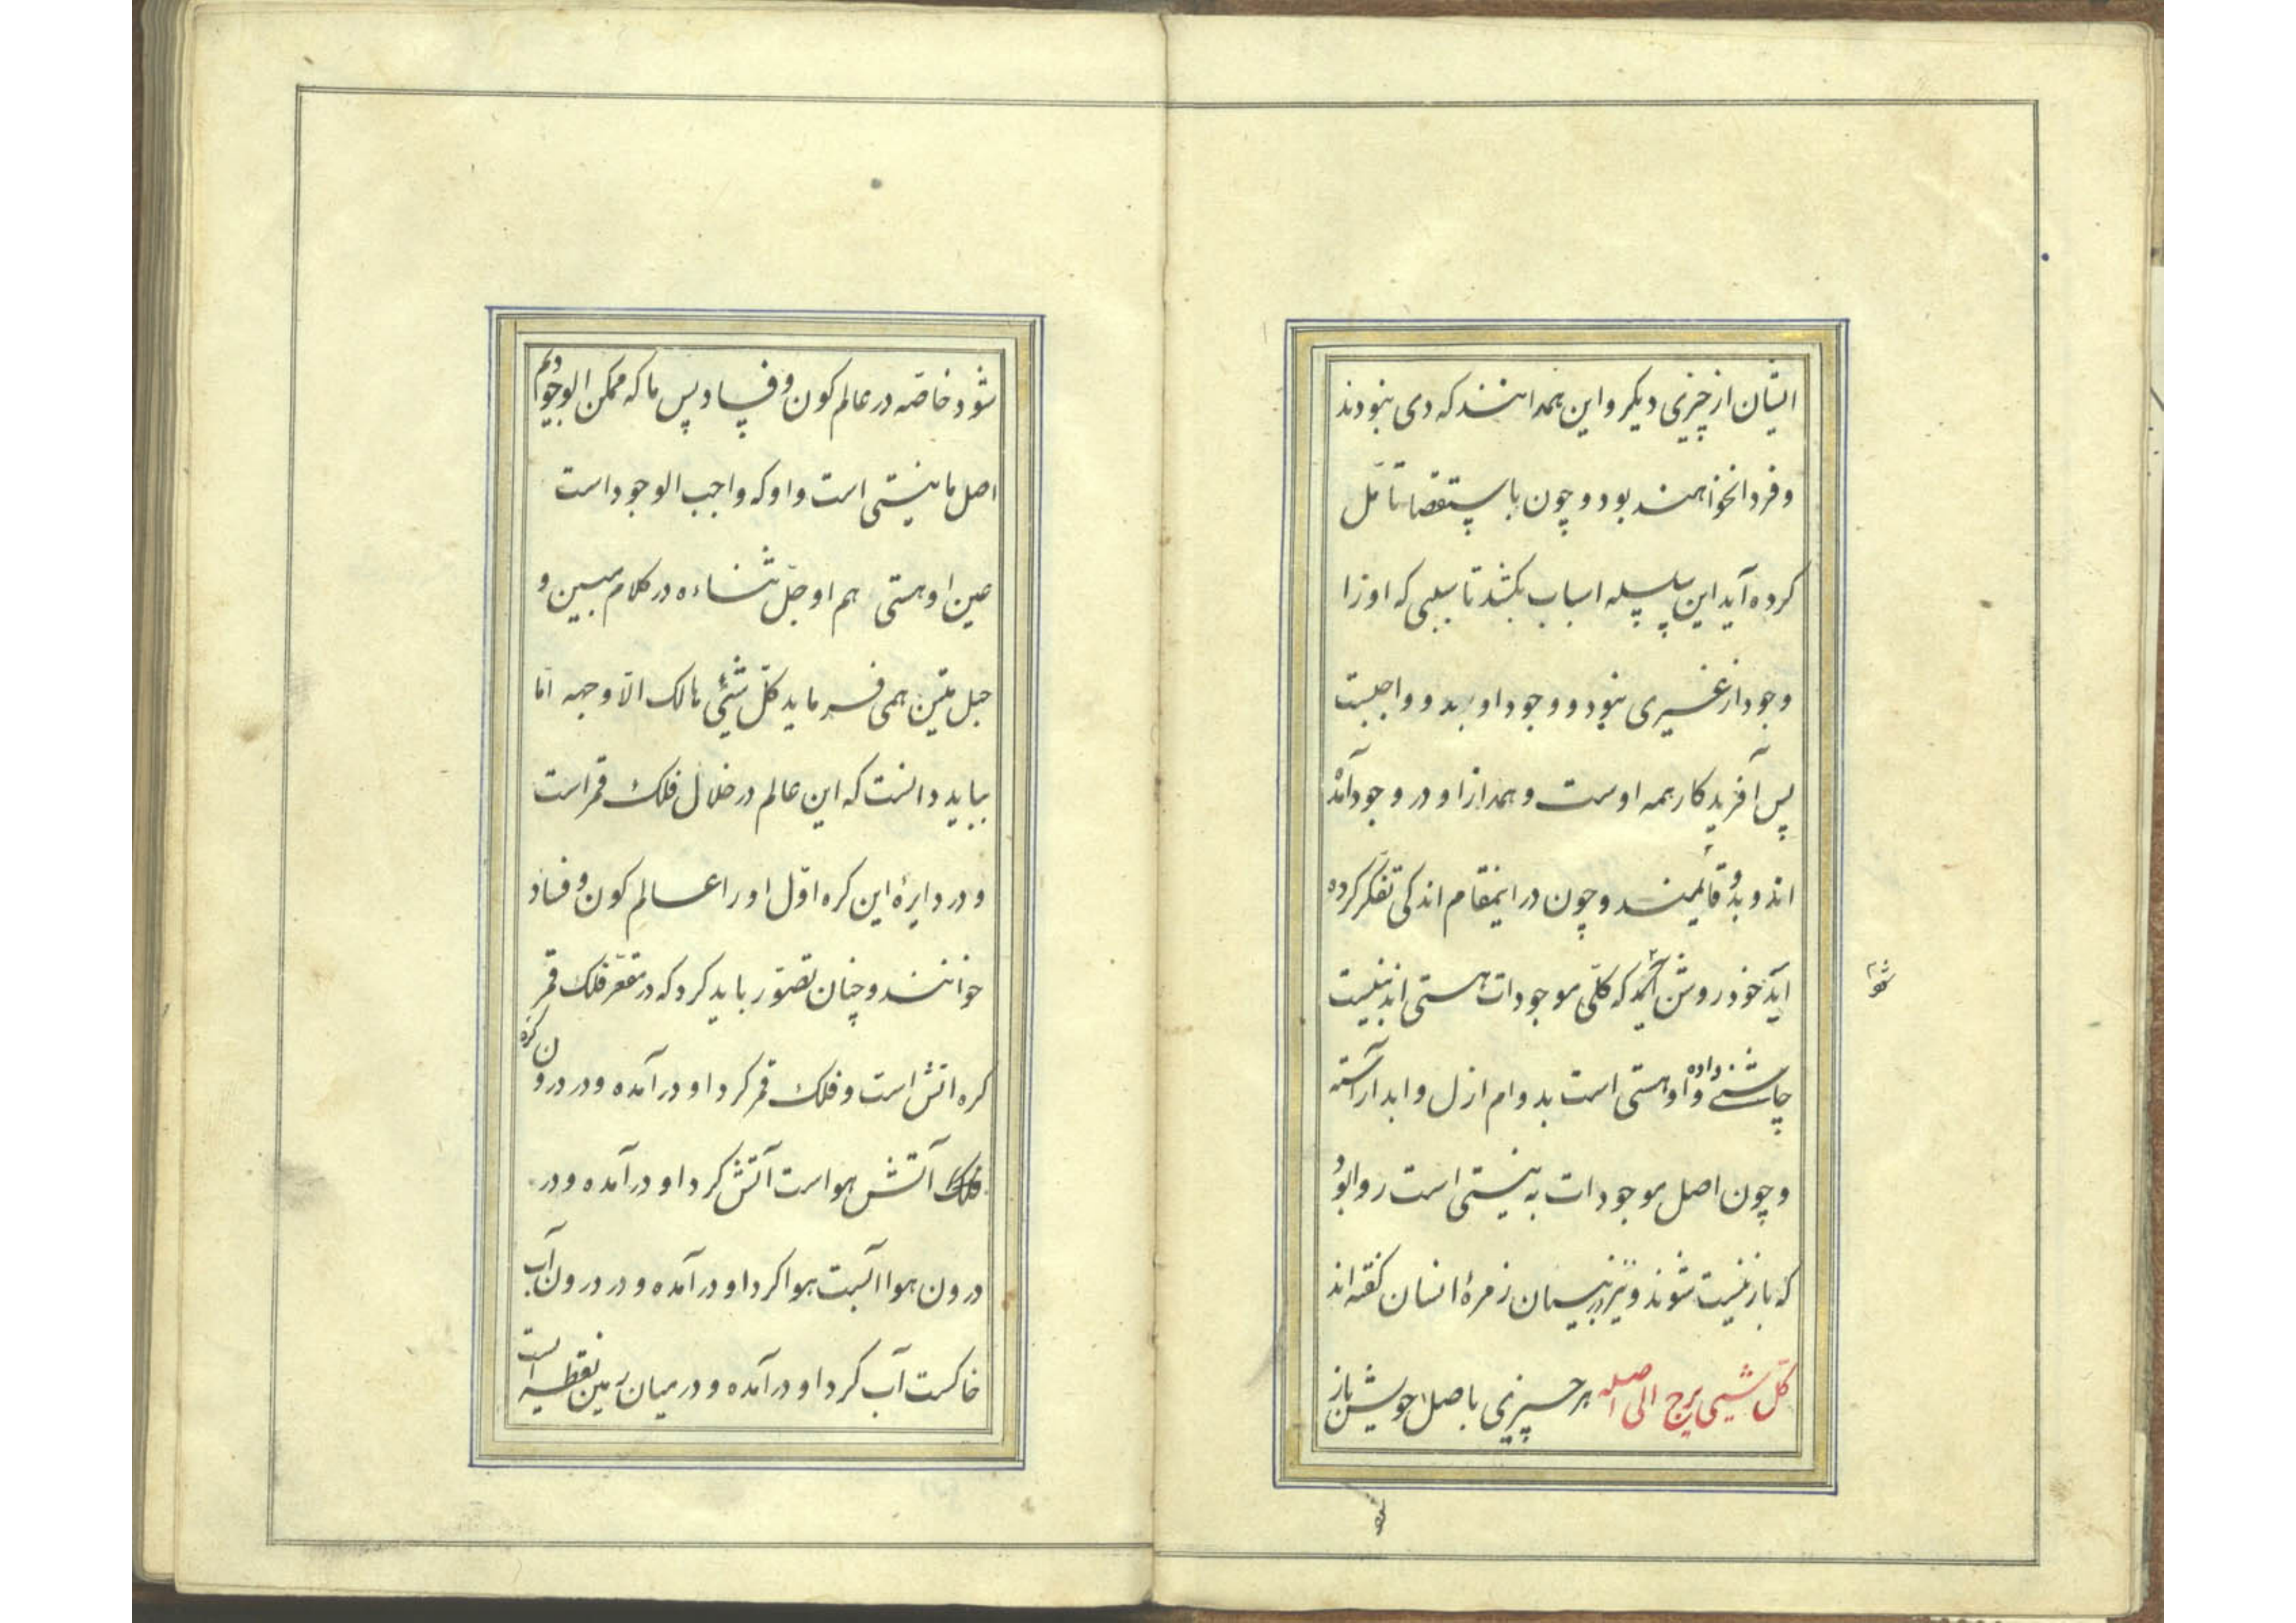 ایشان از چیزی دیگر و این همه انند که دی نبودند
و فردا نخواهند بود و چون باستقصا تأمّل
کرده آید این سلسله اسباب بکشد تا سببی که او را
وجود از غیری نبود و وجود او بدو واجبست
پس آفریدگار همه اوست و همه ازاو در وجود آمده
اند و بدو قائمند و چون در اینمقام اندکی تفکر کرده
آید خود روشن که کلّی موجودات هستی اند بنیست
چاشنی داده و او هستی است بدوام ازل و ابد آراسته
و چون اصل موجودات به نیستی است روا بود
که باز نیست شوند و نیز زمرهٔ انسان گفته اند
کلّ شیی یرجع الی اصله هر چیزی باصل خویش باز
شود
شود خاصّه در عالم کون و فساد پس ما که ممکن الوجودیم
اصل ما نیستی است و او که واجب الوجود است
عین او هستی هم او جلّ ثناءه در کلام مبین و
حبل متین همی فرماید کلّ شیٔ هالک الّا وجهه امّا
بباید دانست که این عالم در خلال فلک قمر است
و در دایرهٔ این کره اوّل او را عالم کون و فساد
خوانند و چنان تصوّر باید کرد که در مقعّر فلک قمر
کره اتش است و فلک قمر گرد او درآمده و در درون کره
آتش هواست آتش گرد او درآمده و در
درون هوا آبست هوا گرد او درآمده و در درون آب
خاکست آب گرد او درآمده و در میان زمین نقطه ایست